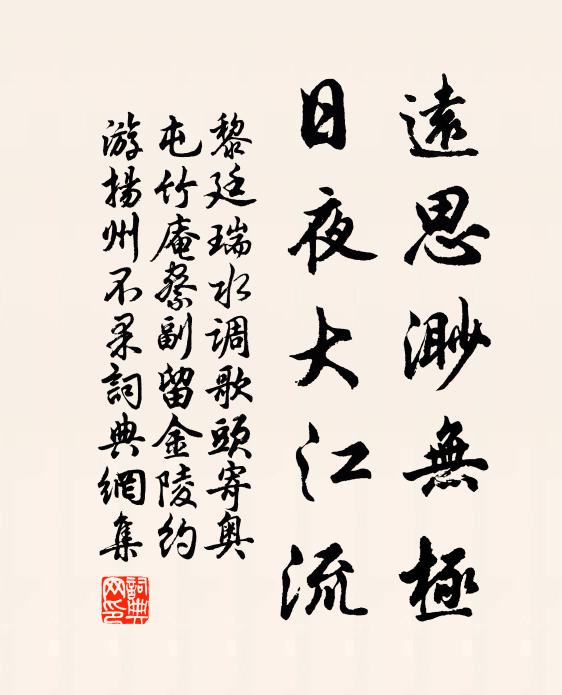 遠思渺無極
日夜大江流
黎廷瑞水调歌頭寄奥
屯竹庵察副留金陵约
游揚州不果詞典網集
詞典網印